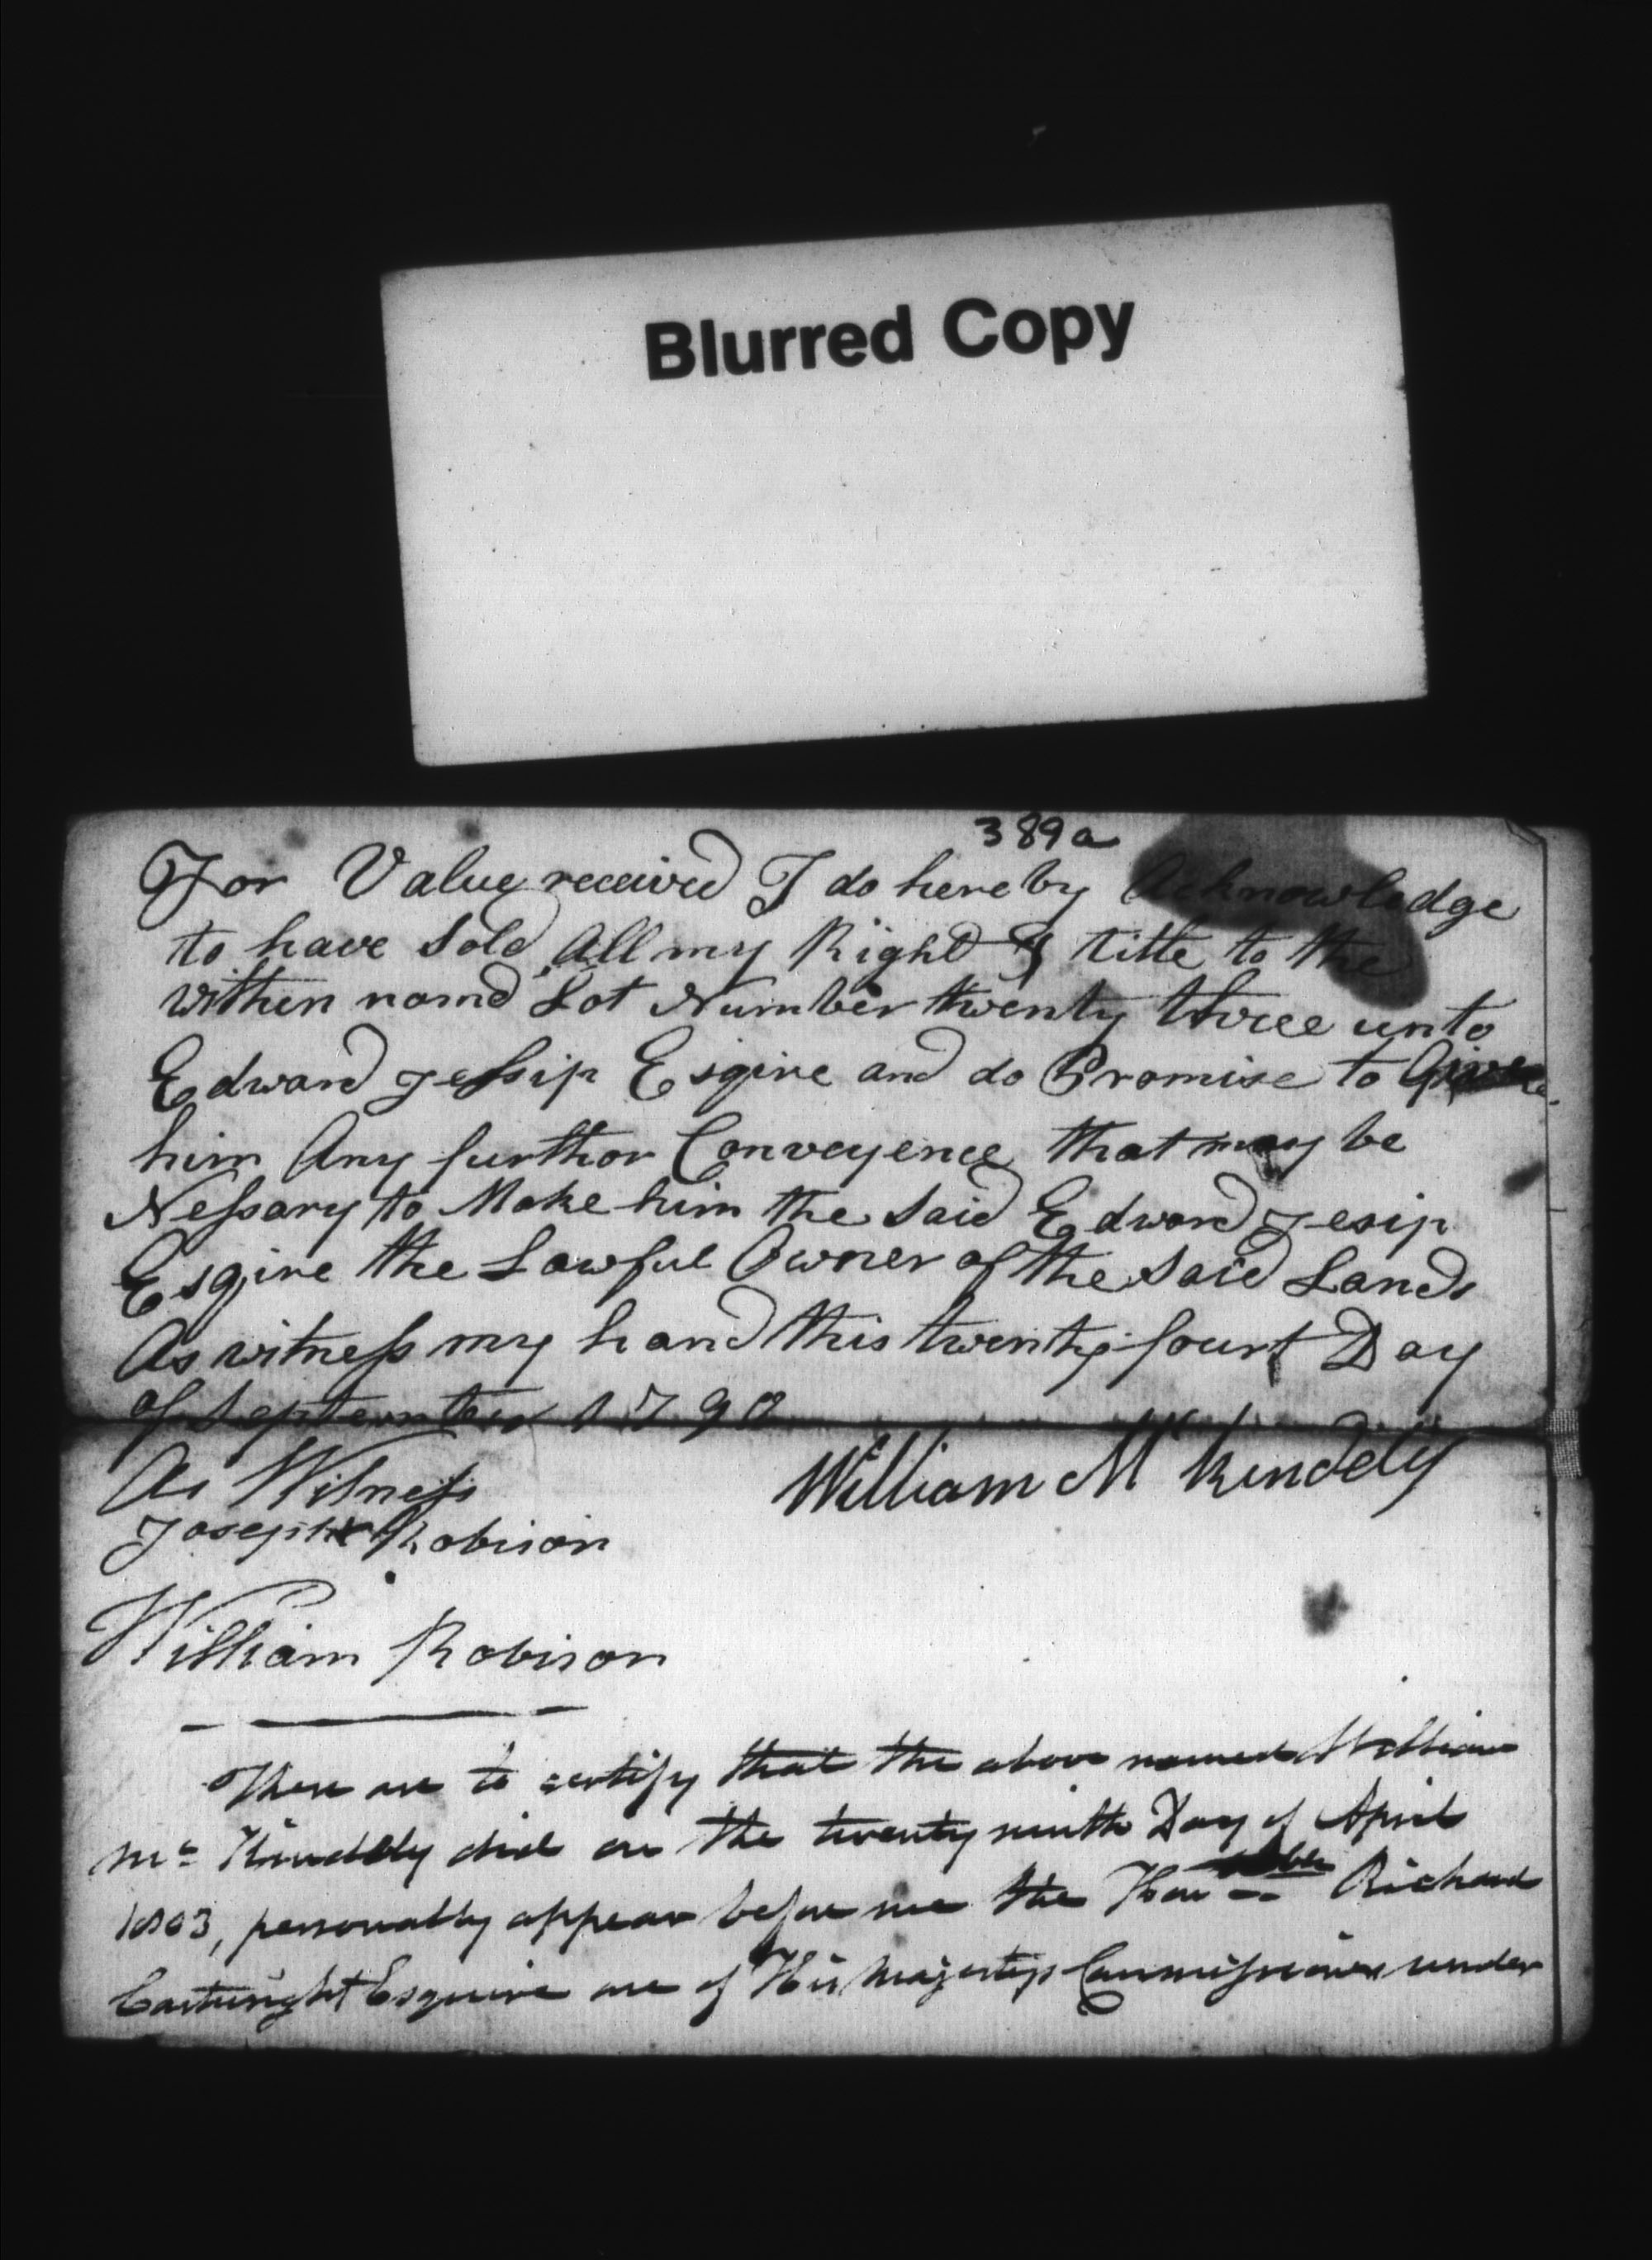 Blurred Copy
389a
For Value received I do hereby Acknowledge
to have Sold All my Right & title to the
within named Lot Number twenty three unto
Edward Jessip Esqire and do Promise to Give
him Any further Conveyence that may be
Nessary to Make him the Said Edward Jesip
Esqire the Lawful Owner of the Said Lands
As witness my hand this twenty fourt Day
of September 1790
As Witness
Joseph Robison
William Mc Kindely
William Robison
These are to certify that the above named William
Mc Kindely did on the twenty ninth Day of April
1803, personally appear before me the Honble Richard
Cartwright Esquire one of His Majestys Commissioners under